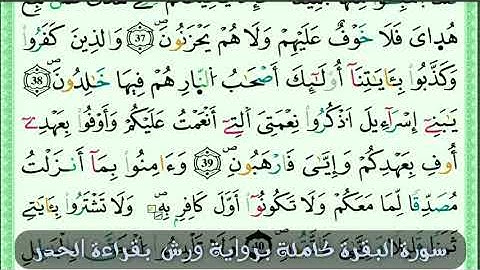 هُدَايَ فَلَا خَوْفٌ عَلَيْهِمْ وَلَا هُمْ يَحْزَنُونَ 37 وَالذِينَ كَفَرُوا
وَكَذَّبُوا بِـَٔايَٰتِنَآ أُوْلَٰٓئِكَ أَصْحَٰبُ النَّارِ هُمْ فِيهَا خَٰلِدُونَ 38
يَٰبَنِےٓ إِسْرَآءِيلَ اَذْكُرُوا نِعْمَتِيَ اَلتِےٓ أَنْعَمْتُ عَلَيْكُمْ وَأَوْفُوا بِعَهْدِےٓ
أُوفِ بِعَهْدِكُمْ وَإِيَّٰيَ فَارْهَبُونِ 39 وَءَامِنُوا بِمَآ أَنزَلْتُ
مُصَدِّقًا لِّمَا مَعَكُمْ وَلَا تَكُونُوٓا أَوَّلَ كَافِرٍ بِهِۦ وَلَا تَشْتَرُوا بِـَٔايَٰتِے
سورة البقرة كاملة برواية ورش بقراءة الحدر